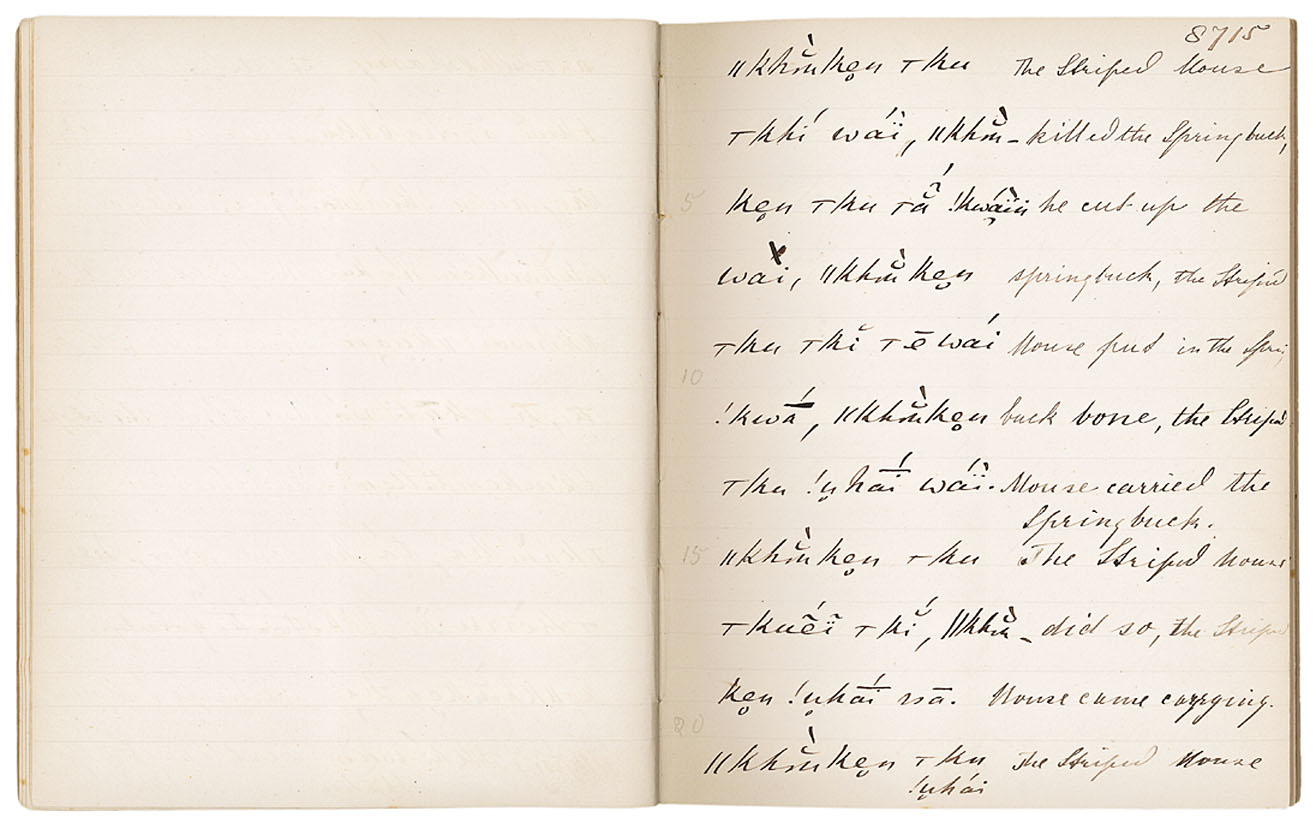 8715
‖khĭ̀n̥ken̥ ⊤ku The Striped Mouse
⊤khí wáï, ‖khĭ̀n̥- killed the Springbuck,
5 ken̥ ⊤ku ⊤ã̆́ he cut up the
wài, ‖khĭ̀n̥ken̥ springbuck, the Striped
⊤ku ⊤kĭ ⊤ē wái Mouse put in the Spring
10
!kwā́, ‖khĭ̀n̥ken̥ buck bone, the Striped
⊤ku !u̥hā́i wáï. Mouse carried the
Springbuck.
15 ‖khĭ̀n̥ken̥ ⊤ku The Striped Mouse
⊤kuẽ́ï ⊤kí, ‖khĭ̀n̥- did so, the Striped
ken̥ !u̥hā́i ssā. Mouse came carrying.
20
‖khĭ̀n̥ken̥ ⊤ku The Striped Mouse
!u̥hái